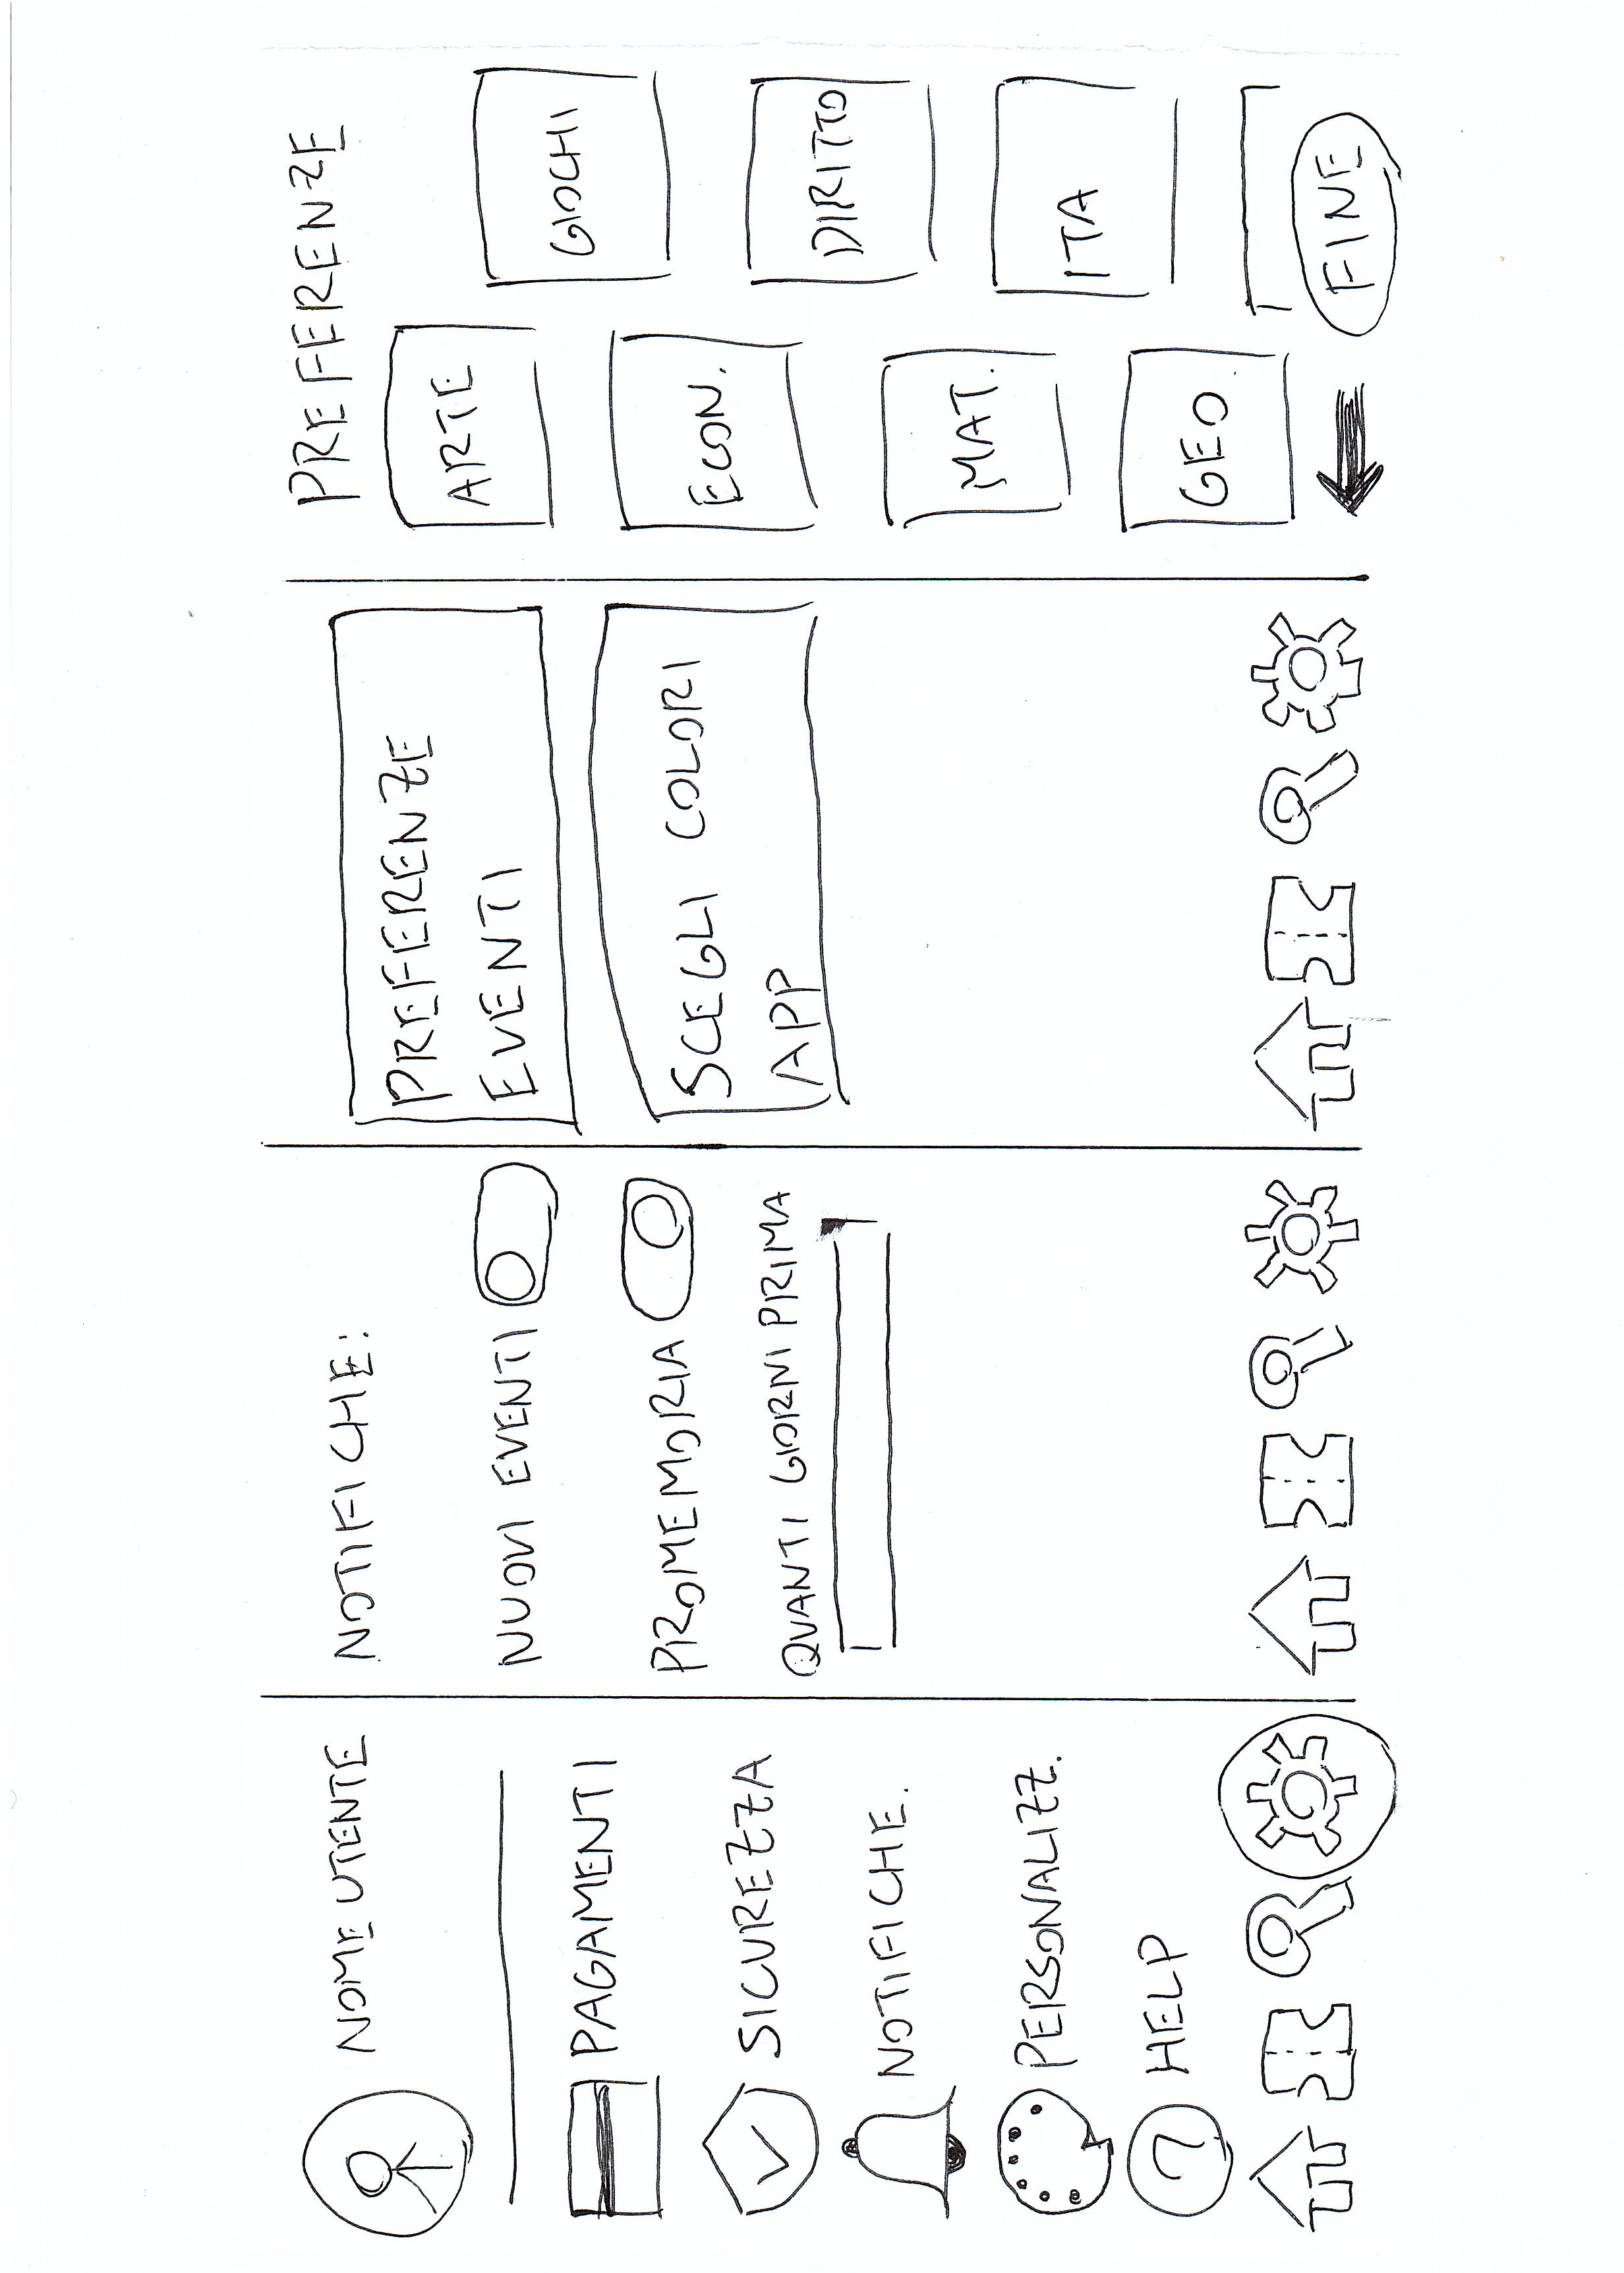 NOME UTENTE
PAGAMENTI
SICUREZZA
NOTIFICHE.
PERSONALIZZ.
?
HELP
NOTIFICHE:
NUOVI EVENTI
PROMEMORIA
QUANTI GIORNI PRIMA
PREFERENZE
EVENTI
SCEGLI COLORI
APP
PREFERENZE
ARTE
GIOCHI
ECON.
DIRITTO
MAT.
ITA
GEO
FINE